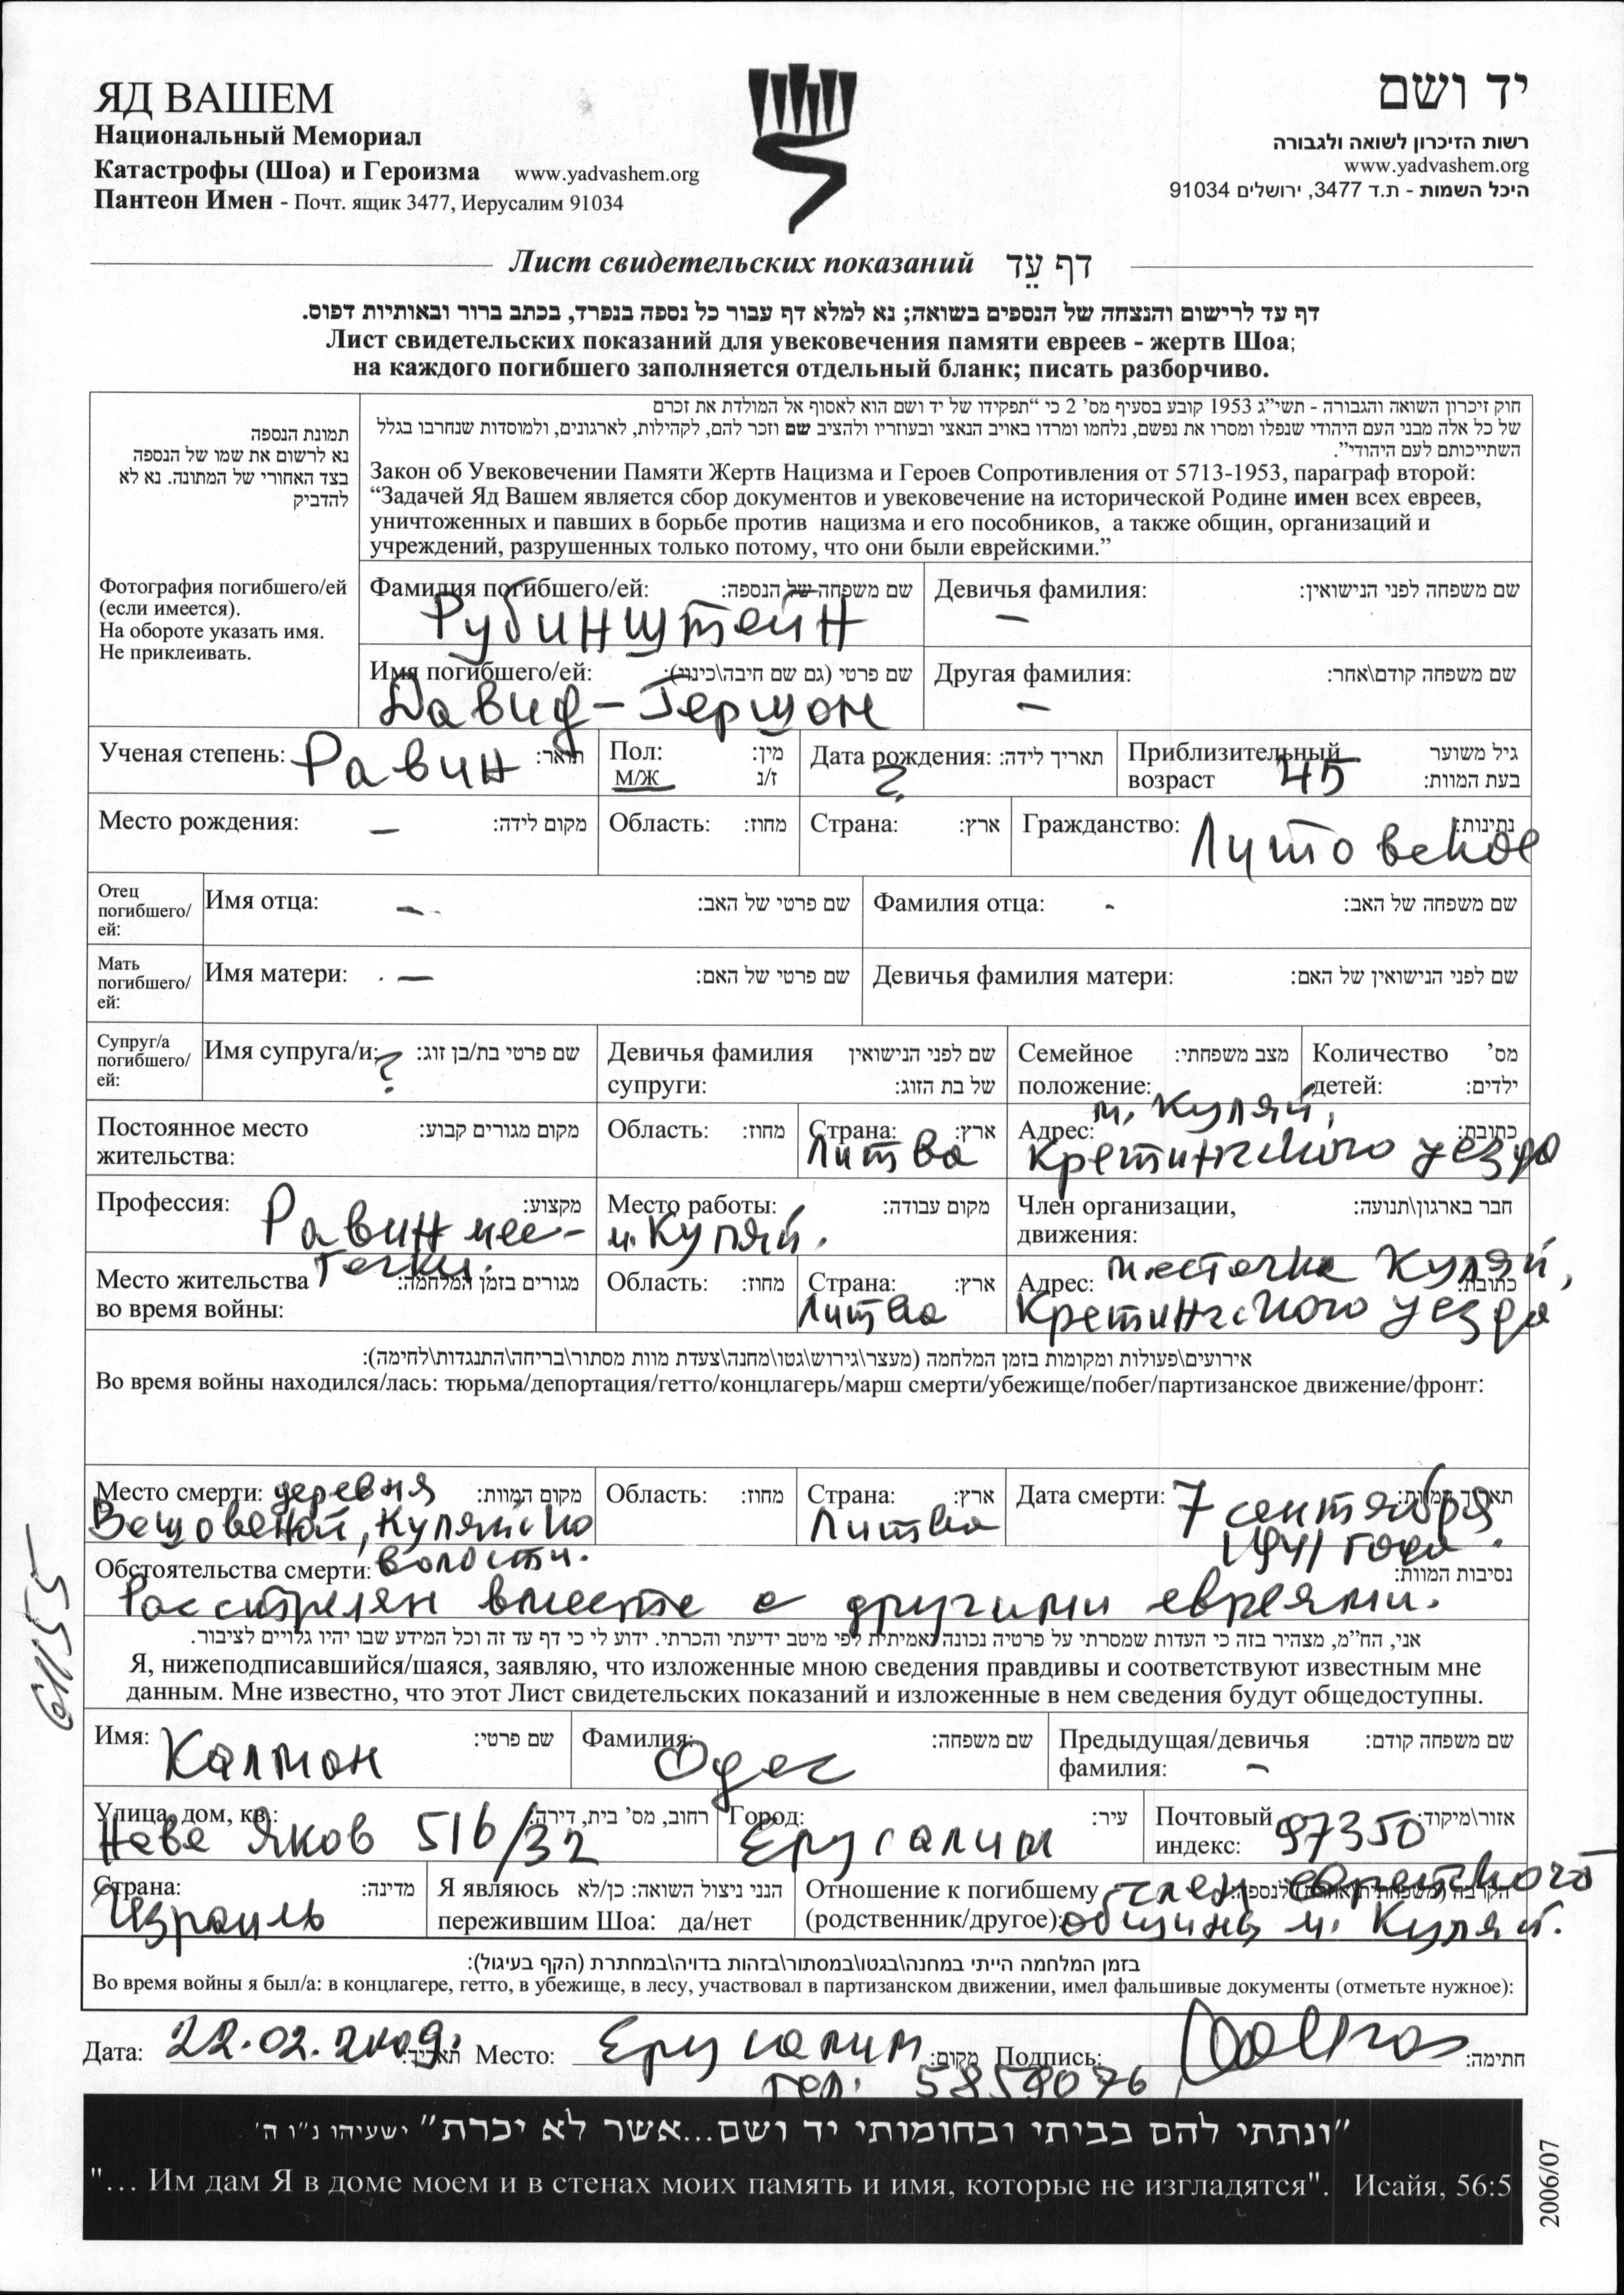 ЯД ВАШЕМ
Национальный Мемориал
Катастрофы (Шоа) и Героизма www.yadvashem.org
Пантеон Имен - Почт. ящик 3477, Иерусалим 91034
יד ושם
רשות הזיכרון לשואה ולגבורה
www.yadvashem.org
היכל השמות - ת.ד 3477, ירושלים 91034
Лист свидетельских показаний דף עֵד
דף עד לרישום והנצחה של הנספים בשואה; נא למלא דף עבור כל נספה בנפרד, בכתב ברור ובאותיות דפוס.
Лист свидетельских показаний для увековечения памяти евреев - жертв Шоа;
на каждого погибшего заполняется отдельный бланк; писать разборчиво.
תמונת הנספה
נא לרשום את שמו של הנספה
בצד האחורי של התמונה. נא לא
להדביק
Фотография погибшего/ей
(если имеется).
На обороте указать имя.
Не приклеивать.
חוק זיכרון השואה והגבורה - תשי״ג 1953 קובע בסעיף מס׳ 2 כי “תפקידו של יד ושם הוא לאסוף אל המולדת את זכרם
של כל אלה מבני העם היהודי שנפלו ומסרו את נפשם, נלחמו ומרדו באויב הנאצי ובעוזריו ולהציב שם וזכר להם, לקהילות, לארגונים, ולמוסדות שנחרבו בגלל
השתייכותם לעם היהודי”.
Закон об Увековечении Памяти Жертв Нацизма и Героев Сопротивления от 5713-1953, параграф второй:
“Задачей Яд Вашем является сбор документов и увековечение на исторической Родине имен всех евреев,
уничтоженных и павших в борьбе против нацизма и его пособников, а также общин, организаций и
учреждений, разрушенных только потому, что они были еврейскими.”
Фамилия погибшего/ей: שם משפחה של הנספה:
Рубинштейн
Девичья фамилия: שם משפחה לפני הנישואין:
–
Имя погибшего/ей: שם פרטי (גם שם חיבה\כינוי):
Давид-Гершон
Другая фамилия: שם משפחה קודם\אחר:
–
Ученая степень: Равин תואר:
Пол: מין:
М/Ж ז/נ
Дата рождения: תאריך לידה:
?
Приблизительный גיל משוער
возраст 45 בעת המוות:
Место рождения: – מקום לידה:
Область: מחוז:
Страна: ארץ:
Гражданство: נתינות:
Литовское
Отец
погибшего/
ей:
Имя отца: – שם פרטי של האב:
Фамилия отца: - שם משפחה של האב:
Мать
погибшего/
ей:
Имя матери: – שם פרטי של האם:
Девичья фамилия матери: שם לפני הנישואין של האם:
Супруг/а
погибшего/
ей:
Имя супруга/и: ? שם פרטי בת/בן זוג:
Девичья фамилия שם לפני הנישואין
супруги: של בת הזוג:
Семейное מצב משפחתי:
положение:
Количество מס׳
детей: ילדים:
Постоянное место מקום מגורים קבוע:
жительства:
Область: מחוז:
Страна: ארץ:
Литва
Адрес: м. Куляй, כתובת:
Кретингского уезда
Профессия: מקצוע:
Равин мес-
течки.
Место работы: מקום עבודה:
м. Куляй.
Член организации, חבר בארגון\תנועה:
движения:
Место жительства מגורים בזמן המלחמה:
во время войны:
Область: מחוז:
Страна: ארץ:
Литва
Адрес: местечке Куляй, כתובת:
Кретингского уезда
אירועים\פעולות ומקומות בזמן המלחמה (מעצר\גירוש\גטו\מחנה\צעדת מוות מסתור\בריחה\התנגדות\לחימה):
Во время войны находился/лась: тюрьма/депортация/гетто/концлагерь/марш смерти/убежище/побег/партизанское движение/фронт:
Место смерти: деревня מקום המוות:
волости.
Область: מחוז:
Страна: ארץ:
Литва
Дата смерти: 7 сентября תאריך המוות:
1941 года.
Обстоятельства смерти: נסיבות המוות:
Расстрелян вместе с другими евреями.
אני, הח״מ, מצהיר בזה כי העדות שמסרתי על פרטיה נכונה ואמיתית לפי מיטב ידיעתי והכרתי. ידוע לי כי דף עד זה וכל המידע שבו יהיו גלויים לציבור.
Я, нижеподписавшийся/шаяся, заявляю, что изложенные мною сведения правдивы и соответствуют известным мне
данным. Мне известно, что этот Лист свидетельских показаний и изложенные в нем сведения будут общедоступны.
Имя: Калман שם פרטי:
Фамилия: Одес שם משפחה:
Предыдущая/девичья שם משפחה קודם:
фамилия: –
Улица, дом, кв.: רחוב, מס׳ בית, דירה:
Неве Яков 516/32
Город: עיר:
Ерусалим
Почтовый אזור\מיקוד:
индекс: 97350
Страна: מדינה:
Израиль
Я являюсь הנני ניצול השואה: כן/לא
пережившим Шоа: да/нет
Отношение к погибшему член еврейской
(родственник/другое): общины м. Куляй.
בזמן המלחמה הייתי במחנה\בגטו\במסתור\בזהות בדויה\במחתרת (הקף בעיגול):
Во время войны я был/а: в концлагере, гетто, в убежище, в лесу, участвовал в партизанском движении, имел фальшивые документы (отметьте нужное):
Дата: 22.02.2009. תאריך: Место: Ерусалим מקום: Подпись: חתימה:
тел. 5859076
”ונתתי להם בביתי ובחומותי יד ושם...אשר לא יכרת” ישעיהו נ״ו ה׳
"... Им дам Я в доме моем и в стенах моих память и имя, которые не изгладятся". Исайя, 56:5
2006/07